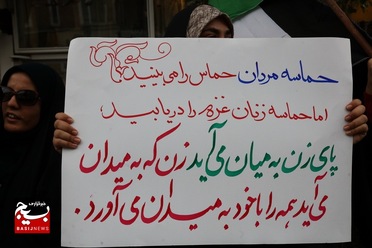 حماسه مردان حماس را می بینید
اما حماسه زنان غزه را دریابید،
پای زن به میان می آید زن که به میدان
می آید همه را با خود به میدان می آورد.
خبرگزاری
بسیج
BASIJNEWS